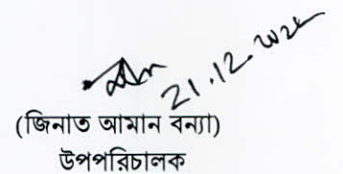 21.12.২০২৮
(জিনাত আমান বন্যা)
উপপরিচালক